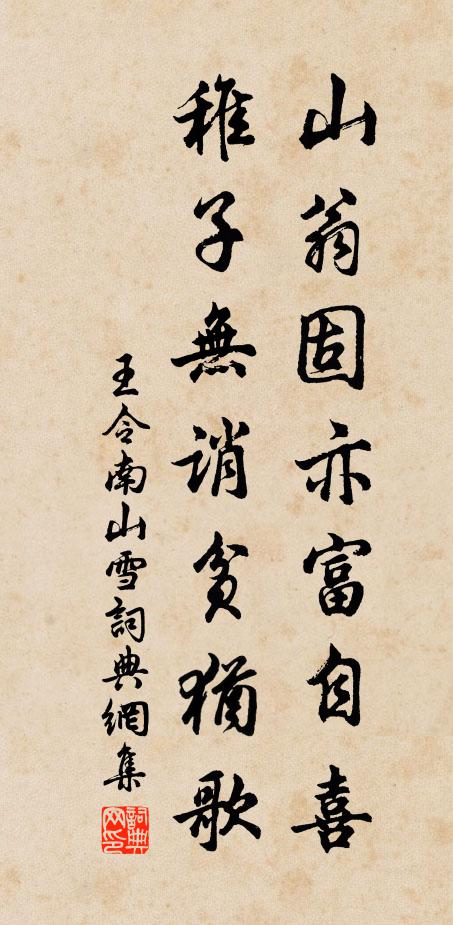 山翁固亦富自喜
稚子無誚貧猶歌
王令南山雪詞典網集
詞典网印